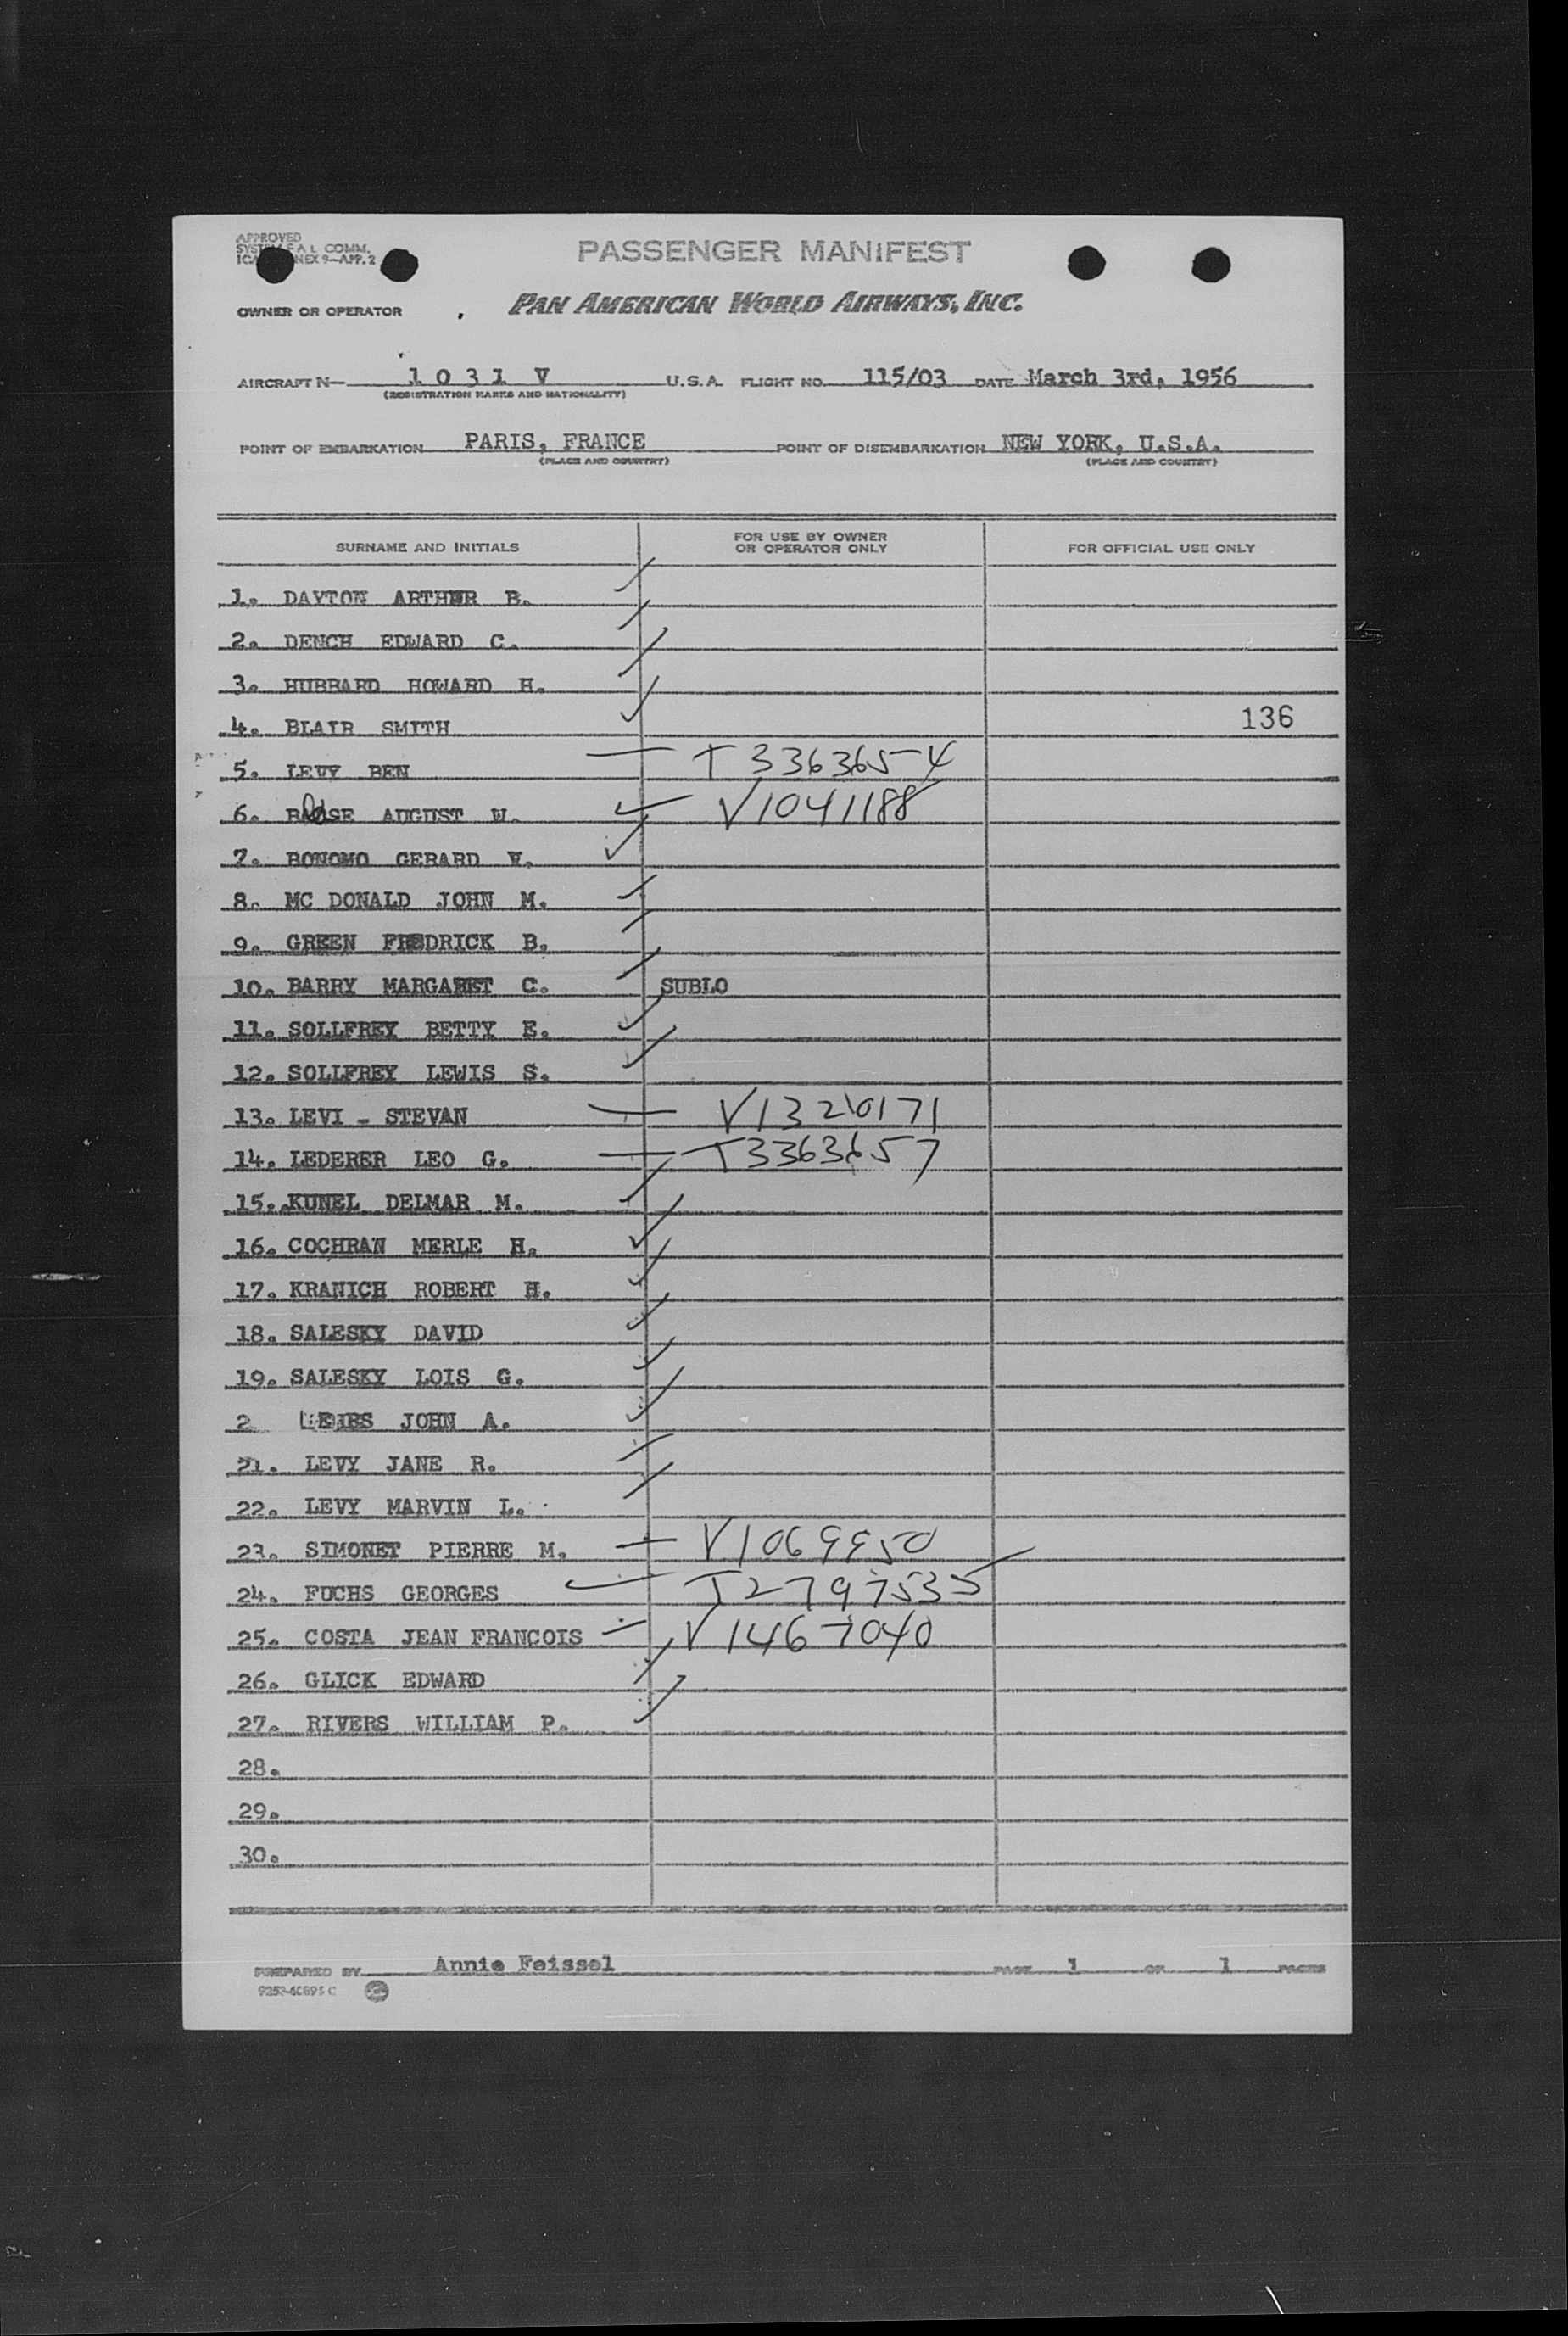 APPROVED
PASSENGER MANIFEST
OWNER OR OPERATOR PAN AMERICAN WORLD AIRWAYS, INC.
AIRCRAFT N— 1 0 3 1 V U.S.A. FLIGHT NO. 115/03 DATE March 3rd, 1956
(REGISTRATION MARKS AND NATIONALITY)
POINT OF EMBARKATION PARIS, FRANCE POINT OF DISEMBARKATION NEW YORK, U.S.A.
(PLACE AND COUNTRY) (PLACE AND COUNTRY)
SURNAME AND INITIALS FOR USE BY OWNER OR OPERATOR ONLY FOR OFFICIAL USE ONLY
1. DAYTON ARTHUR B.
2. DENCH EDWARD C.
3. HUBBARD HOWARD H.
4. BLAIR SMITH 136
5. LEVY BEN T 3363654
6. AUGUST W. V1041188
7. BONOMO GERARD V.
8. MC DONALD JOHN M.
9. GREEN FREDRICK B.
10. BARRY MARGARET C. SUBLO
11. SOLLFREY BETTY E.
12. SOLLFREY LEWIS S.
13. LEVI - STEVAN V1320171
14. LEDERER LEO G. T3363657
15. KUNEL DELMAR M.
16. COCHRAN MERLE H.
17. KRANICH ROBERT H.
18. SALESKY DAVID
19. SALESKY LOIS G.
2 JOHN A.
21. LEVY JANE R.
22. LEVY MARVIN L.
23. SIMONET PIERRE M. V1069950
24. FUCHS GEORGES T2797535
25. COSTA JEAN FRANCOIS V1467040
26. GLICK EDWARD
27. RIVERS WILLIAM P.
28.
29.
30.
PREPARED BY Annie Feissel PAGE 1 OF 1 PAGES